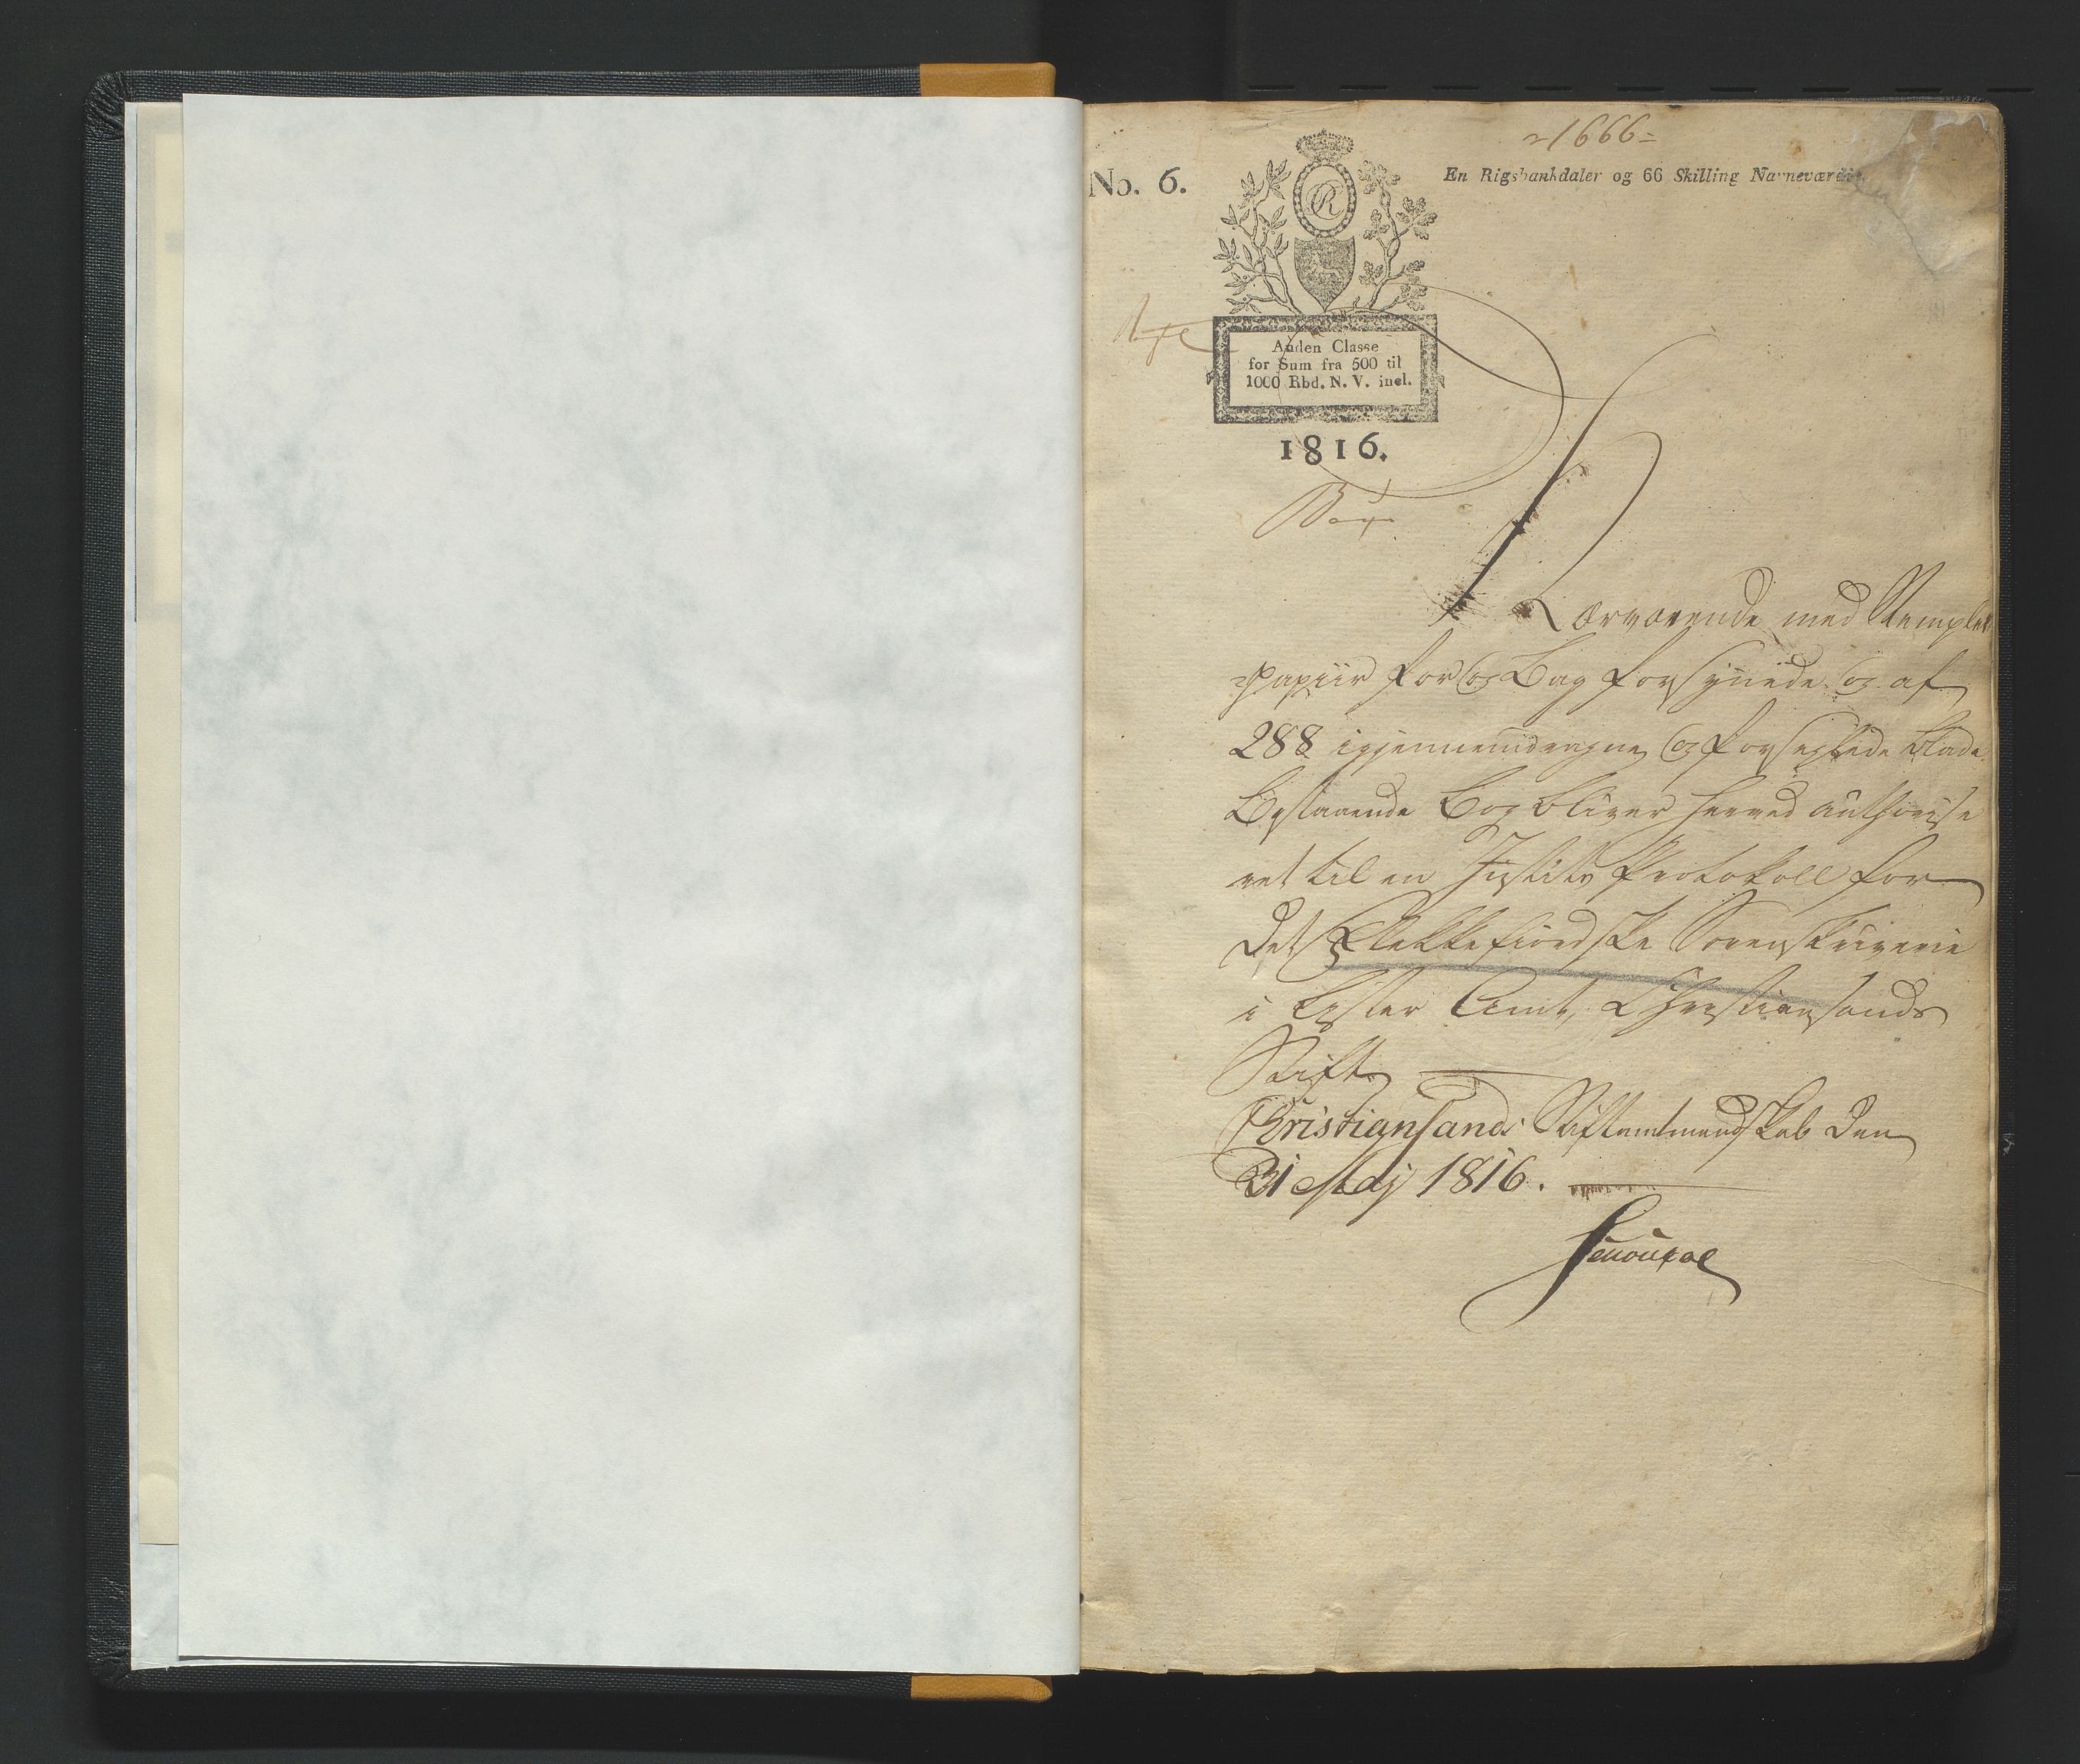 =1666=
No. 6.
En Rigsbankdaler og 66 Skilling Navneværdie.
Anden Classe
for Sum fra 500 til
1000 Rbd. N. V. incl.
1816.
Nærværende med Stemplet
papiir for og Bag forsynede og af
288 igjennemdragne og forseglede Blade
Bestaaende Bog bliver herved authorise
ret til en Justits Protokoll for
det Flekkefiordske Sorenskriverie
i Lister Amt, Christiansands
Stift
Christiansands Stiftamtmandskab den
21 Maj 1816.